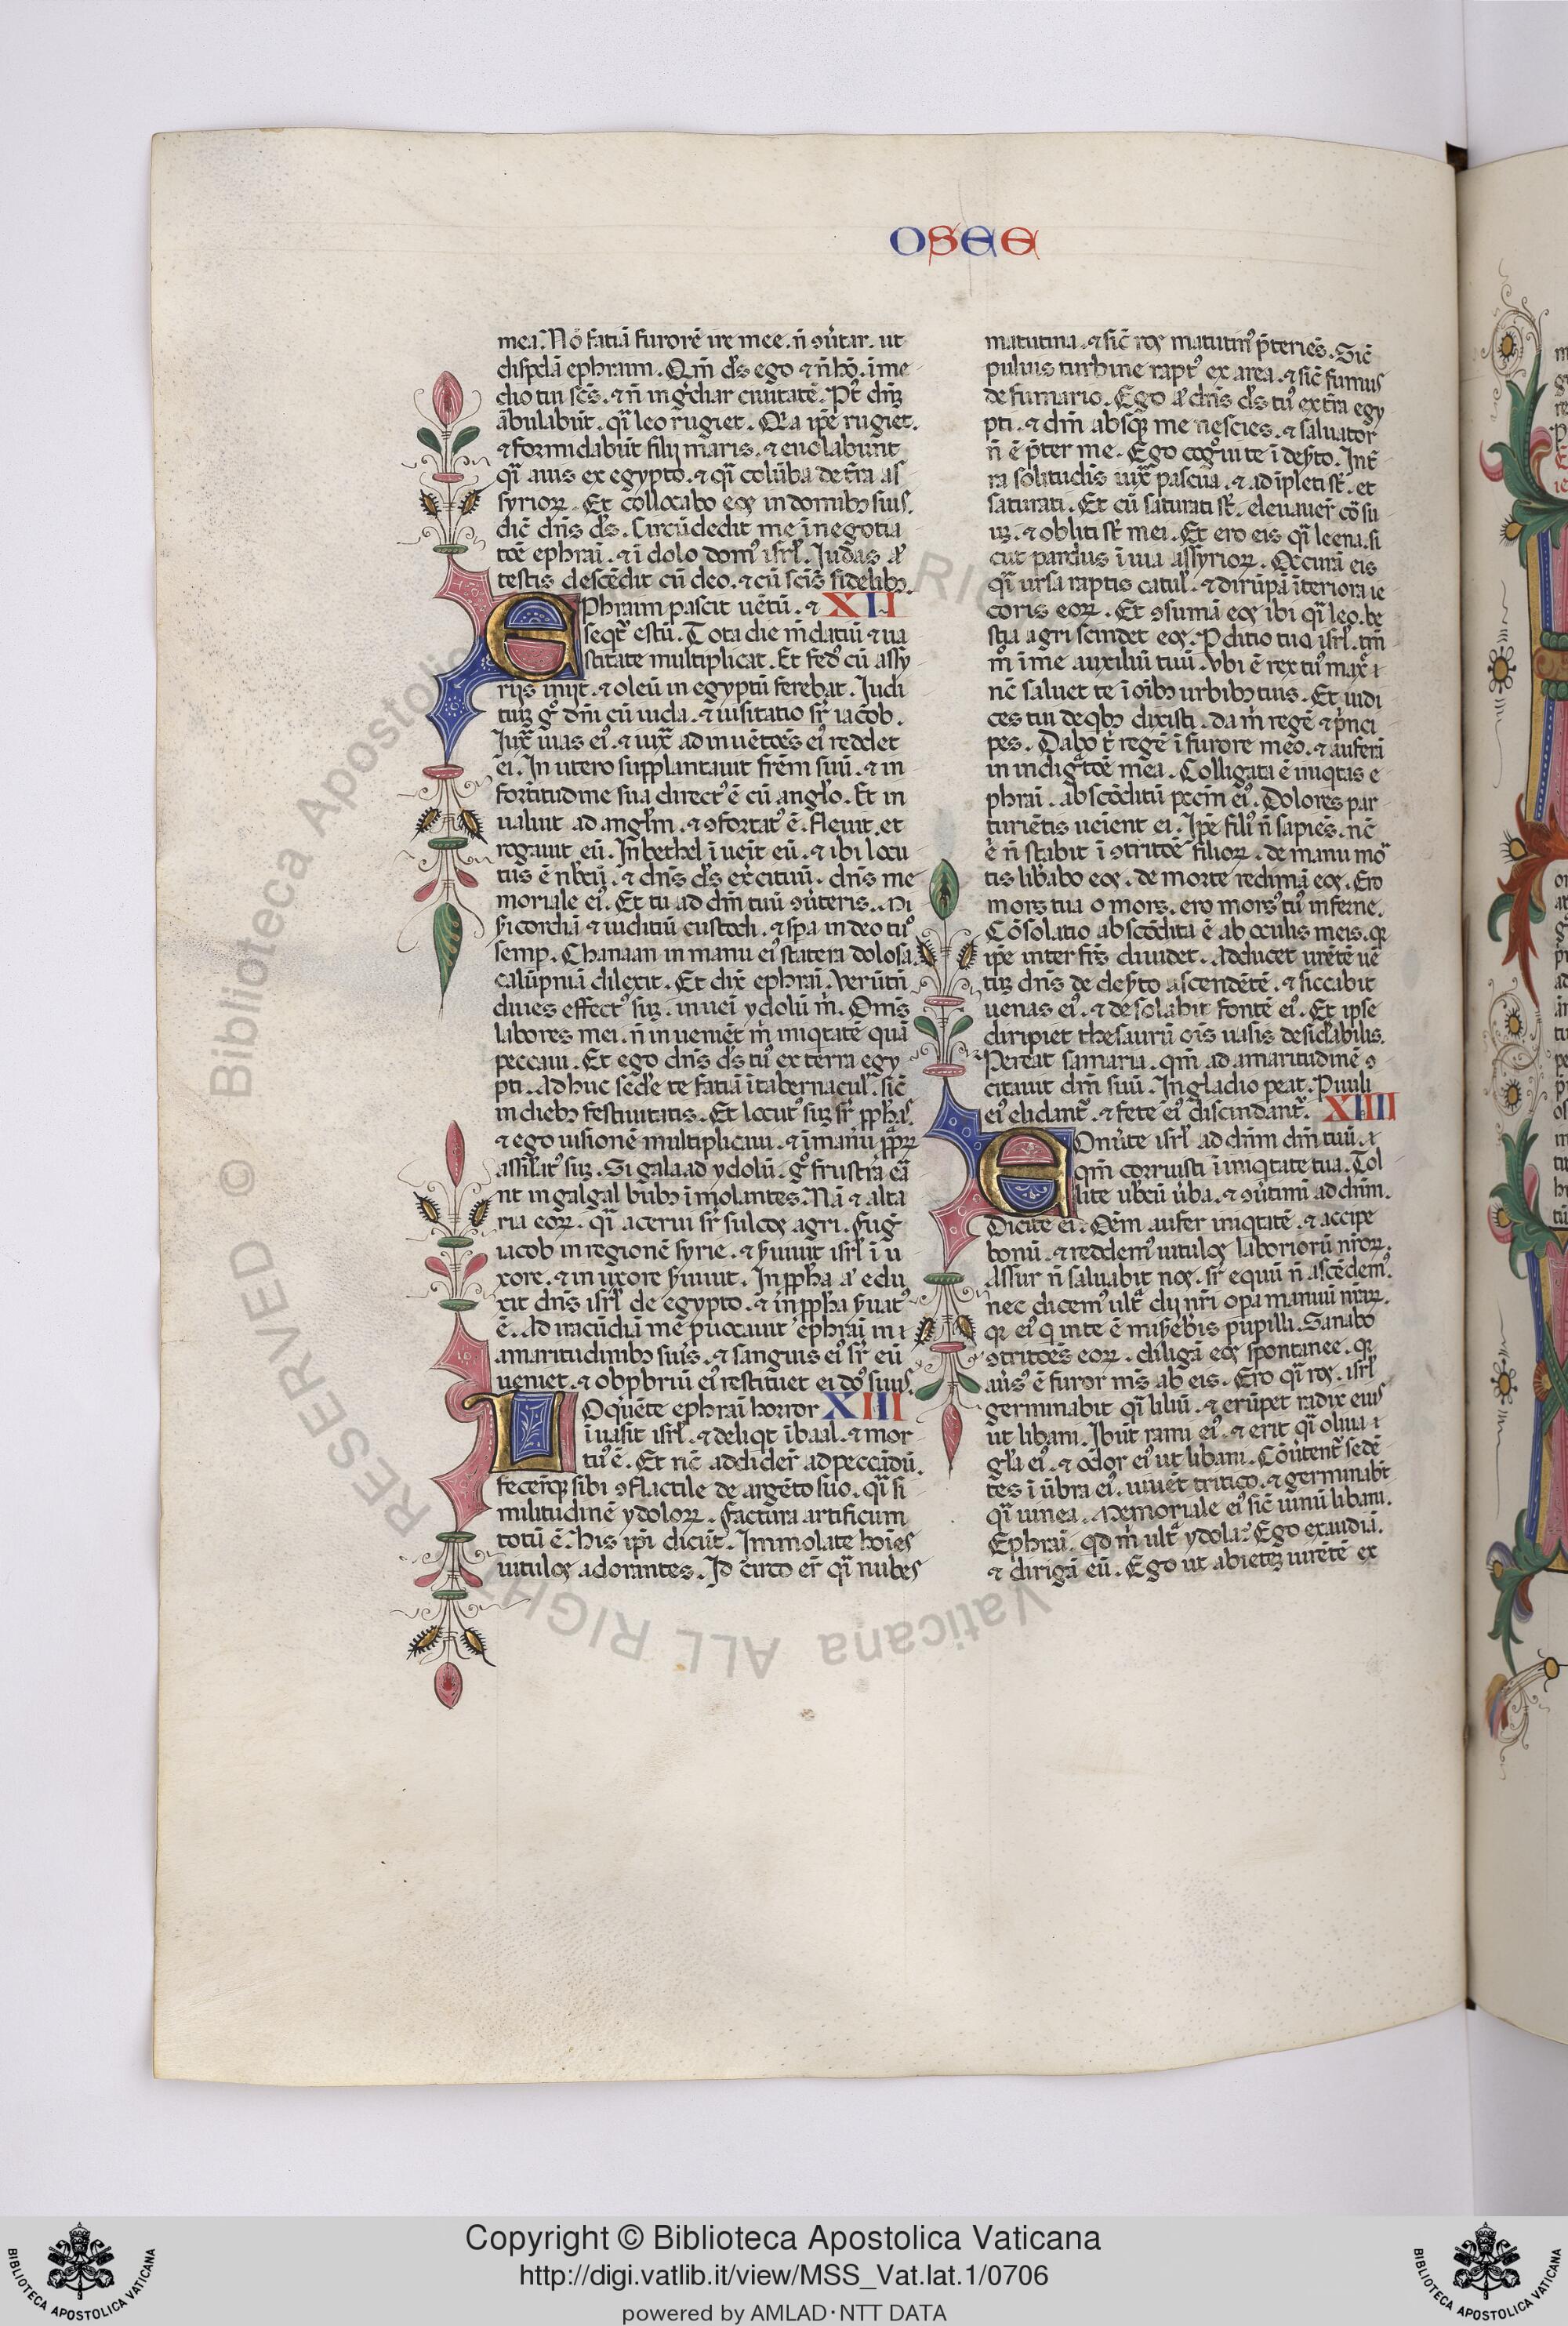 OSEE
mea. Nō fatiā furorē ire mee. n̄ ꝯu̾tar. ut
dispdā ephraim. Qm̄ ds̄ ego ⁊ n̄ hō. ī me
dio tui sc̄s. ⁊ n̄ ingdiar ciuitatē. Pt̾ dn̄ꝫ
ābulabūt. qͣi leo rugiet. Qꝛa ipē rugiet.
⁊ formidabūt filij maris. ⁊ euolabunt
qͣi auis ex egypto. ⁊ qͣi colūba de tr̄a as
syrioꝝ. Et collocabo eos in domibꝫ suis.
dic̄ dn̄s ds̄. Circūdedit me ī negotia
tōe ephraī. ⁊ ī dolo domꝰ isrl̄. Iudas aͣ
testis descēdit cū deo. ⁊ cū sc̄is fidelibꝫ.
Ephraim pascit uētū. ⁊ XII
seqt̄ estū. Tota die m̄datiū ⁊ ua
stitate multiplicat. Et fedꝰ cū assy
rijs inijt. ⁊ oleū in egyptū ferebat. Iudi
tiuꝫ gͦ dn̄i cū iuda. ⁊ uisitatio sr̄ iacob.
Iux̄ uias eiꝰ. ⁊ iux̄ adinuētōes eiꝰ reddet
ei. In utero supplantauit frēm suū. ⁊ in
fortitudine sua directꝰ ē cū angl̄o. Et in
ualuit ad angl̄m. ⁊ ꝯfortatꝰ ē. fleuit. et
rogauit eū. In bethel īueit eū. ⁊ ibi locu
tus ē nb̄cū. ⁊ dn̄s ds̄ ex̄cituū. dn̄s me
moriale eiꝰ. Et tu ad dm̄ tuū ꝯu̾teris. Mi
sicordiā ⁊ iuditiū custodi. ⁊ spa in deo tuo
semp. Chanaan in manu eiꝰ statera dolosa.
calūpniā dilexit. Et dix̄ ephraī. Verūtn̄
diues effectꝰ suꝫ. inuei ydolū m̄. Om̄s
labores mei. n̄ inueniēt m̄ iniqtatē quā
peccaui. Et ego dn̄s ds̄ tuꝰ ex terra egy
pti. Adhuc sede̾ te fatiā ī tabernacul̄. sic̄
in diebꝫ festiuitatis. Et locutꝰ suꝫ sr̄ pph̄as.
⁊ ego uisionē multiplicaui. ⁊ ī manu ppͣꝝ
assil̄atꝰ suꝫ. Si galaad ydolū. gͦ frustra erā
nt in galgal bubꝫ īmolantes. Nā ⁊ alta
ria eoꝝ. qͣi acerui sr̄ sulcos agri. fug̾
iacob in regionē syrie. ⁊ s̾uiuit isrl̄ ī u
xore. ⁊ in uxore s̾uiuit. In pph̄a aͣ edu
xit dn̄s isrl̄ de egypto. ⁊ in pph̄a s̾uatꝰ
ē. Ad iracūdiā mē puocauit ephraī in ⁊
amaritudinibꝫ suis. ⁊ sanguis eiꝰ sr̄ eū
ueniet. ⁊ obpbriū eiꝰ restituet ei dōs suus.
LOquēte ephraī horror XIII
īuasit isrl̄. ⁊ deliqt ī baal. ⁊ mor
tuꝰ ē. Et nc̄ addider̄ ad peccādū.
fecer̄qꝫ sibi ꝯflactile de argēto suo. qͣi si
militudinē ydoloꝝ. factura artificum
totū ē. His ipī dicūt. Immolate hoīes
uitulos adorantes. Idcirco er̄t qͣi nubes
matutina. ⁊ sic̄ ros matutinꝰ p̄teriēs. Sic̄
puluis turbine raptꝰ ex area. ⁊ sic̄ fumus
de fumario. Ego aͣ dn̄s ds̄ tuꝰ ex tr̄a egy
pti. ⁊ dm̄ absqꝫ me nescies. ⁊ saluator
n̄ ē p̄ter me. Ego cognoui te ī des̾to. In tr̄
ra solitudīs iux̄ pascua. ⁊ adīpleti st̄. et
saturati. Et cū saturati st̄. eleuauer̄ cō su
uꝫ. ⁊ obliti st̄ mei. Et ero eis qͣi leena. si
cut pardus ī uia assyrioꝝ. Occurā eis
qͣi ursa raptis catul̄. ⁊ dirūpā īteriora ie
coris eoꝝ. Et ꝯsumā eos ibi qͣi leo. be
stia agri scindet eos. Pditio tua isrl̄. tm̄
m̄ ī me auxiliū tuū. Vbi ē rex tuꝰ max̄ ⁊
nc̄ saluet te ī oībꝫ urbibꝫ tuis. Et iudi
ces tui de qbꝫ dixisti. da m̄ regē ⁊ pⁱnci
pes. Dabo t̄ regē ī furore meo. ⁊ auferā
in indigͣtōe mea. Colligata ē iniqtas e
phraī. abscōditū pccm̄ eiꝰ. Dolores par
turiētis ueīent ei. Ipē filiꝰ n̄ sapiēs. nc̄
ē n̄ stabit ī ꝯtritōe filioꝝ. de manu mor
tis lib̾abo eos. de morte redimā eos. Ero
mors tua o mors. ero morsꝰ tuꝰ inferne.
Cōsolatio abscōdita ē ab oculis meis. qꝛ
ipē inter frēs diuidet. Adducet urētē uē
tuꝫ dn̄s de des̾to ascendētē. ⁊ siccabit
uenas eiꝰ. ⁊ desolabit fontē eiꝰ. Et ipse
diripiet thesaurū oīs uasis desid̾abilis.
Pereat samaria. qm̄ ad amaritudinē ꝯ
citauit dm̄ suū. In gladio peat. Puuli
eiꝰ elidant̄. ⁊ fete eiꝰ discindant̄. XIIII
COnu̾te isrl̄ ad dn̄m dm̄ tuū. ⁊
qm̄ corruisti ī iniqtate tua. Tol
lite ubcū u̾ba. ⁊ ꝯu̾timī ad dn̄m.
Dicite ei. Oēm aufer iniqtatē. ⁊ accipe
bonū. ⁊ reddemꝰ uitulos laborioru nr̄oꝝ.
Assur n̄ saluabit nos. sr̄ equū n̄ ascēdemꝰ.
nec dicemꝰ ult̄ dij nr̄i opa manuū nr̄aꝝ.
qꝛ eiꝰ q in te ē mis̾eb̾is pupilli. Sanabo
ꝯtritōes eoꝝ. diligā eos spontanee. qꝛ
au̾sꝰ ē furor mꝰ ab eis. Ero qͣi ros. isrl̄
germinabit qͣi liliū. ⁊ erūpet radix eius
ut libani. Ibūt rami eiꝰ. ⁊ erit qͣi oliua ⁊
gl̄a eiꝰ. ⁊ odor eiꝰ ut libani. Cōu̾tent̄ sedē
tes ī ūbra eiꝰ. uiuēt tritico. ⁊ germinabūt
qͣi uinea. Memoriale eiꝰ sic̄ uinū libani.
Ephraī. qd m̄ ult̄ ydola? Ego exaudiā.
⁊ dirigā eū. Ego ut abietē uirētē ex
Copyright © Biblioteca Apostolica Vaticana
http://digi.vatlib.it/view/MSS_Vat.lat.1/0706
powered by AMLAD·NTT DATA
RESERVED © Biblioteca Apostolica Vaticana ALL RIGH
BIBLIOTECA APOSTOLICA VATICANA
BIBLIOTECA APOSTOLICA VATICANA